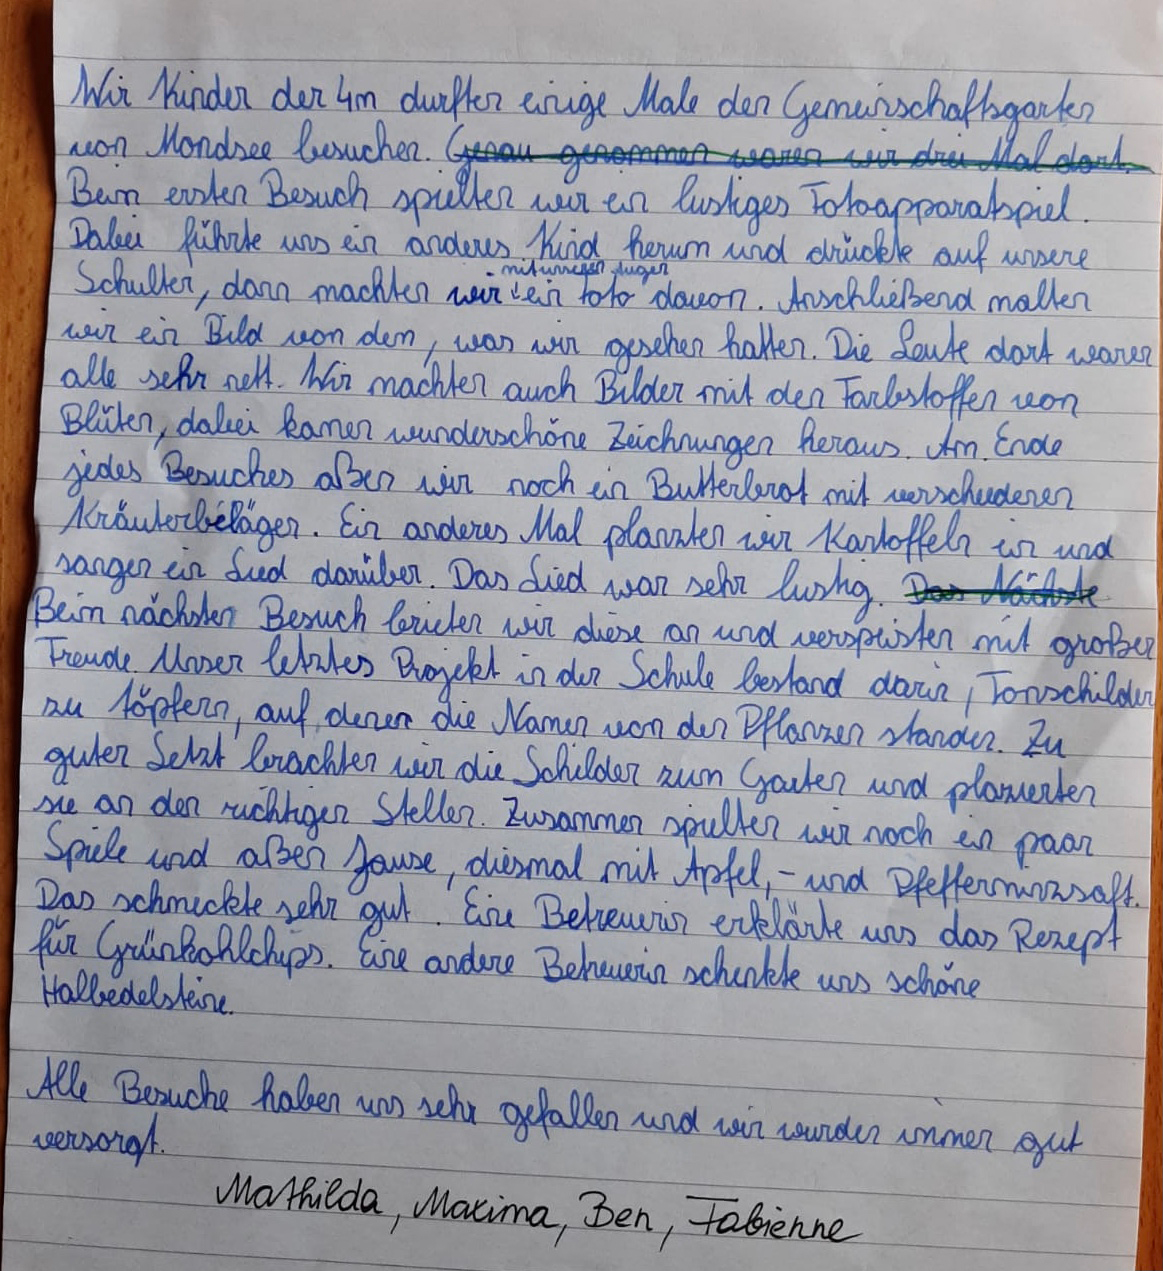 Wir Kinder der 4m durften einige Male den Gemeinschaftsgarten
von Mondsee besuchen. Genau genommen waren wir drei Mal dort.
Beim ersten Besuch spielten wir ein lustiges Fotoapparatspiel.
Dabei führte uns ein anderes Kind herum und drückte auf unsere
mit unseren Augen
Schulter, dann machten wir ein Foto davon. Anschließend malten
wir ein Bild von dem, was wir gesehen hatten. Die Leute dort waren
alle sehr nett. Wir machten auch Bilder mit den Farbstoffen von
Blüten, dabei kamen wunderschöne Zeichnungen heraus. Am Ende
jedes Besuches aßen wir noch ein Butterbrot mit verschiedenen
Kräuterbelägen. Ein anderes Mal planzten wir Kartoffeln ein und
sangen ein Lied darüber. Das Lied war sehr lustig. Das Nächste
Beim nächsten Besuch brieten wir diese an und verspeisten mit großer
Freude Unser letztes Projekt in der Schule bestand darin, Tonschilder
zu töpfern, auf denen die Namen von den Pflanzen standen. Zu
guter Letzt brachten wir die Schilder zum Garten und plazierten
sie an den richtigen Stellen. Zusammen spielten wir noch ein paar
Spiele und aßen Jause, diesmal mit Apfel,- und Pfefferminzsaft.
Das schmeckte sehr gut. Eine Betreuerin erklärte uns das Rezept
für Grünkohlchips. Eine andere Betreuerin schenkte uns schöne
Halbedelsteine.
Alle Besuche haben uns sehr gefallen und wir wurden immer gut
versorgt.
Mathilda, Maxima, Ben, Fabienne